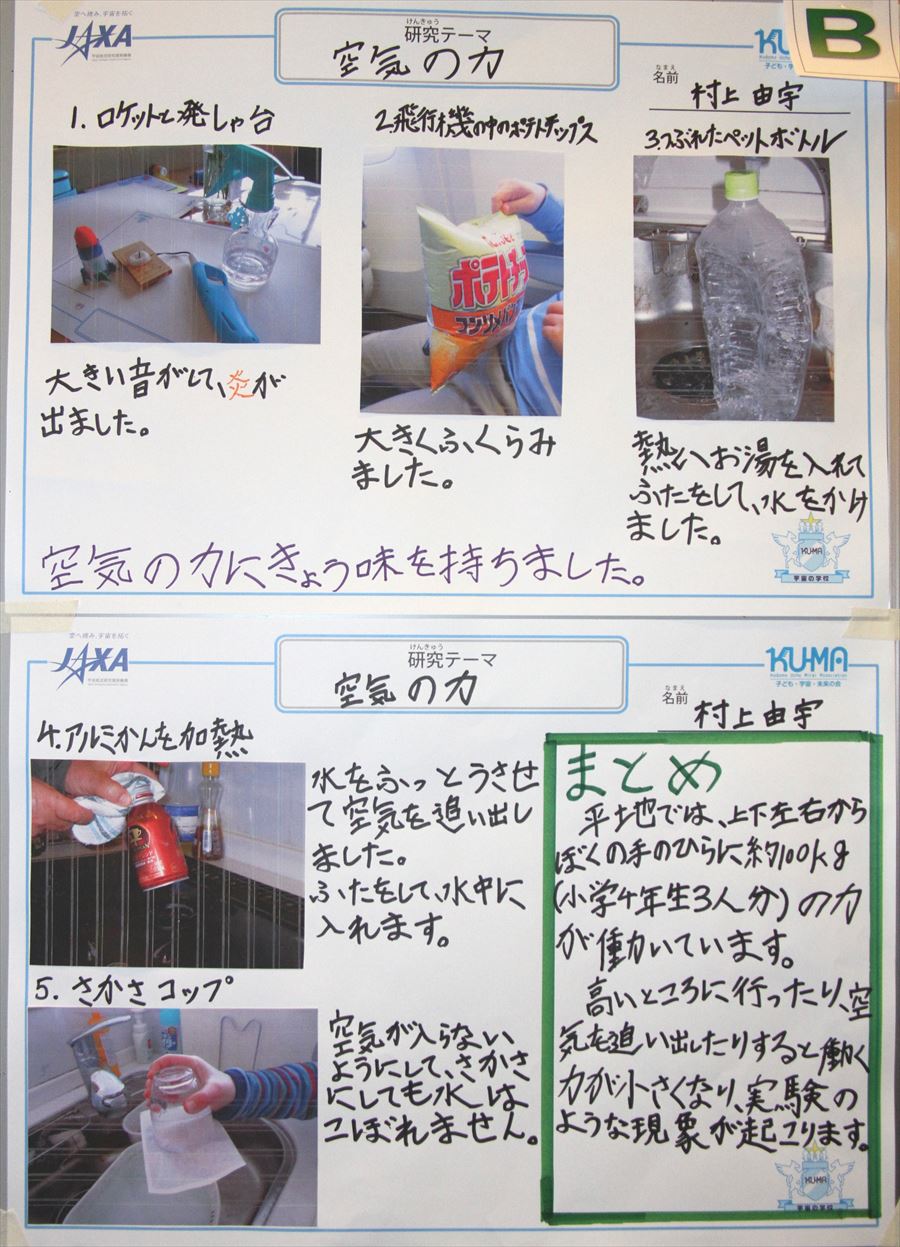 空へ挑み、宇宙を拓く
JAXA
けんきゅう
研究テーマ
空気の力
B
なまえ
名前
村上 由宇
1. ロケットと発しゃ台
2.飛行機の中のポテトチップス
3.つぶれたペットボトル
ポテトチッ
コンソメパン
大きい音がして、炎が
出ました。
大きくふくらみ
ました。
熱いお湯を入れて
ふたをして、水をかけ
ました。
空気の力にきょう味を持ちました。
KUMA
宇宙の学校
空へ挑み、宇宙を拓く
JAXA
けんきゅう
研究テーマ
空気の力
KU-MA
Kodomo Uchu Mirai Association
子ども・宇宙・未来の会
なまえ
名前
村上 由宇
4.アルミかんを加熱
水をふっとうさせ
て空気を追い出し
ました。
ふたをして、水中に
入れます。
5. さかさコップ
空気が入らない
ようにして、さかさ
にしても水は
こぼれません。
まとめ
平地では、上下左右から
ぼくの手のひらに約100kg
(小学4年生3人分)の力
が働いています。
高いところに行ったり、空
気を追い出したりすると働く
力が小さくなり、実験の
ような現象が起こります。
KUMA
宇宙の学校